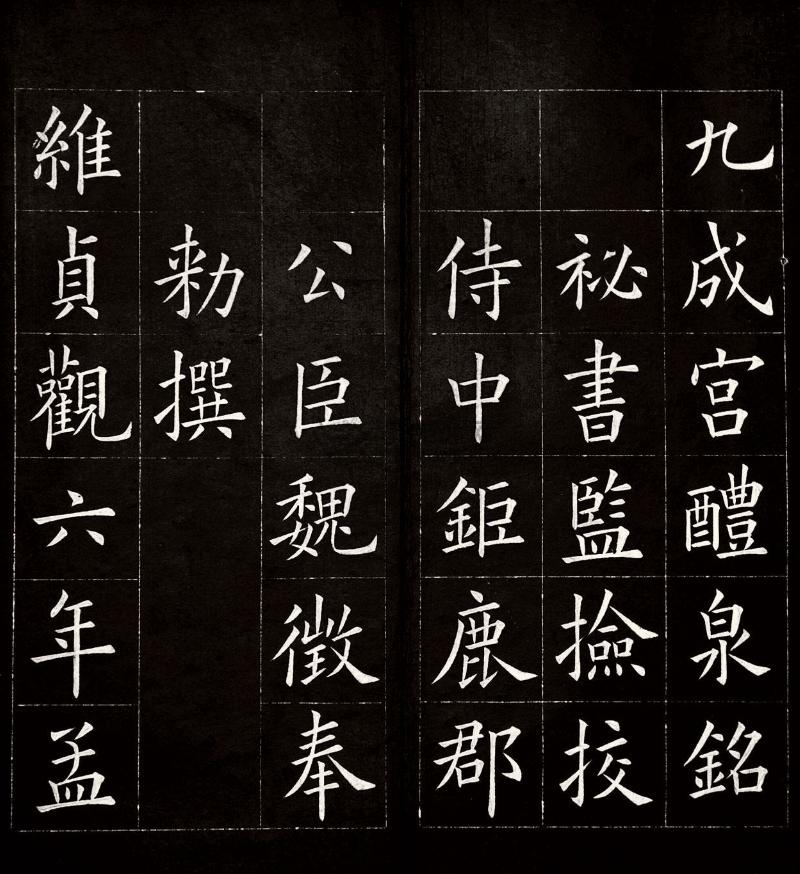 九成宫醴泉銘
祕書監撿挍
侍中鉅鹿郡
公臣魏徵奉
勑撰
維貞觀六年孟